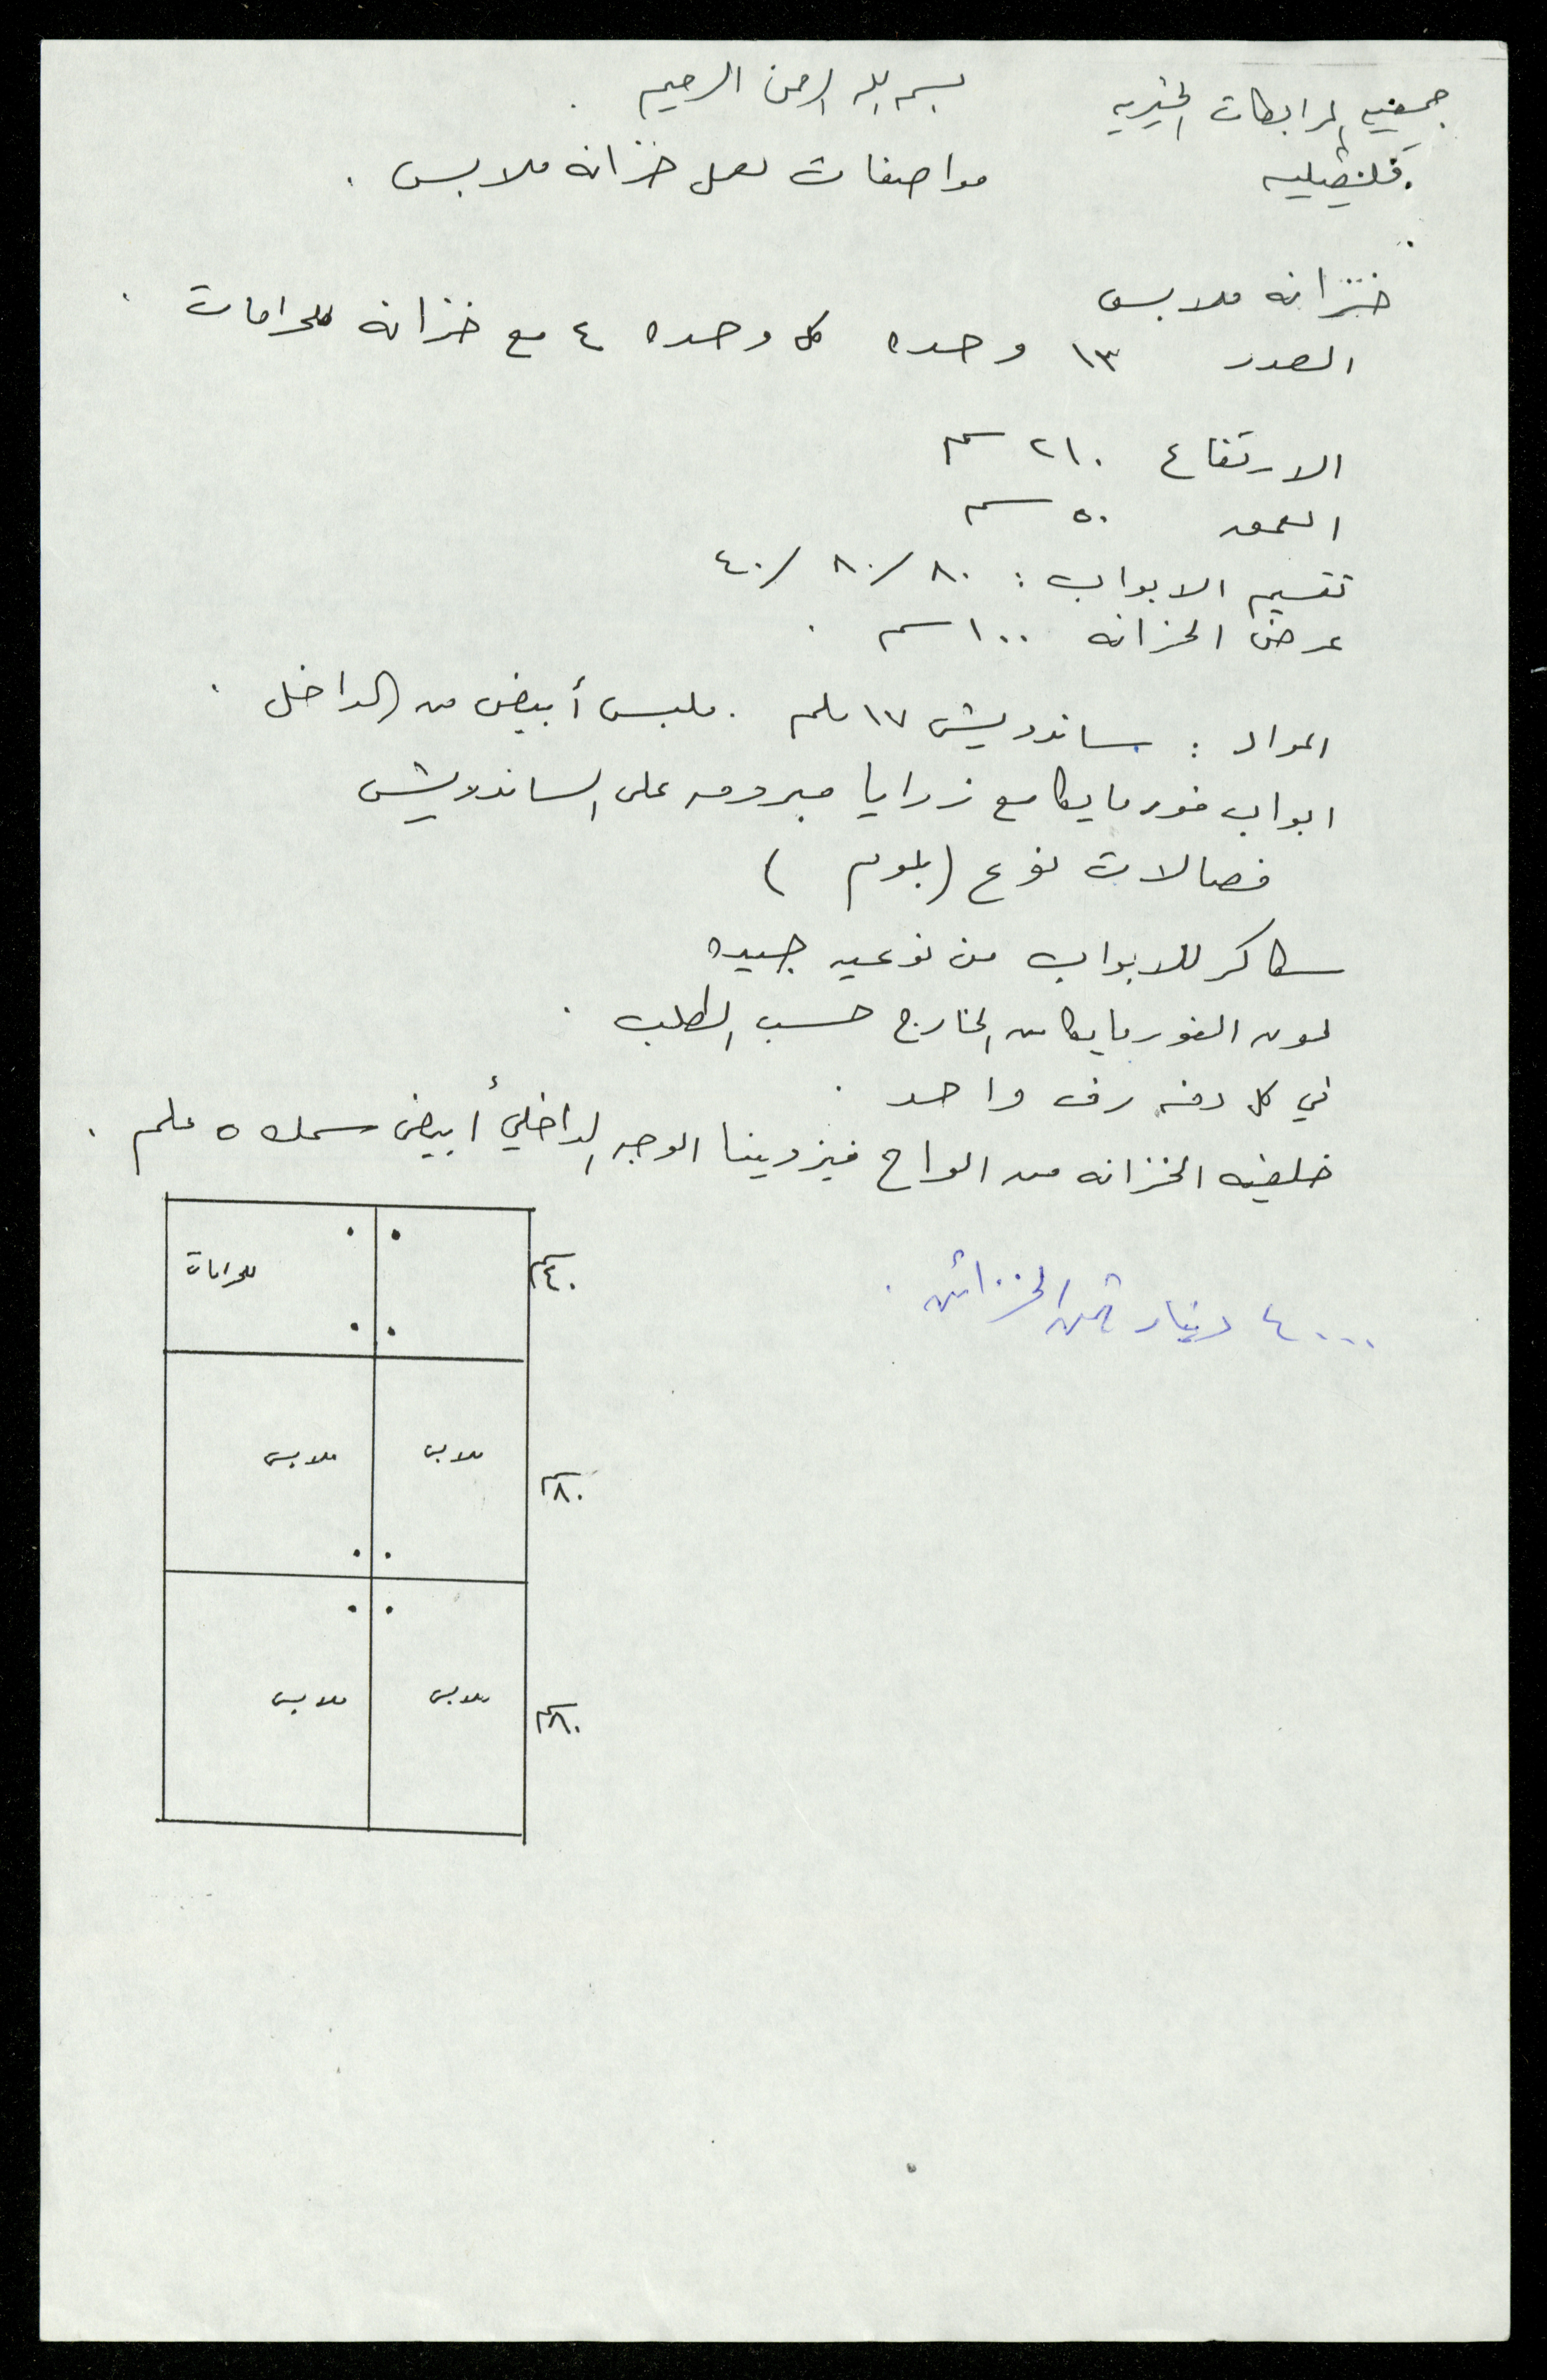 بسم الله الرحمن الرحيم .
جمعيه المرابطات الخيريه
قلقيليه
مواصفات لعمل خزانة ملابس .
خزانة ملابس
العدد ١٣ وحده كل وحده ٤ مع خزانة للحرامات .
الارتفاع ٢١٠ سم
العمق ٥٠ سم
تقسيم الابواب : ٨٠/ ٨٠/ ٤٠
عرض الخزانه ١٠٠ سم .
المواد : ساندويش ١٧ ملم . ملبس أبيض من الداخل .
ابواب فورمايكا مع زوايا مبرومه على الساندويش
فصالات نوع (بلوم )
سكاكر للابواب من نوعيه جيده
لون الفورمايكا من الخارج حسب الطلب .
في كل دفه رف واحد .
خلفية الخزانه من الواح فيزونيت الوجه الداخلي أبيض سمك ٥ ملم .
٤٠٠٠ دينار ثمن الخزائن .
للحرامات
٤٠ سم
ملابس ملابس
٨٠ سم
ملابس ملابس
٨٠ سم